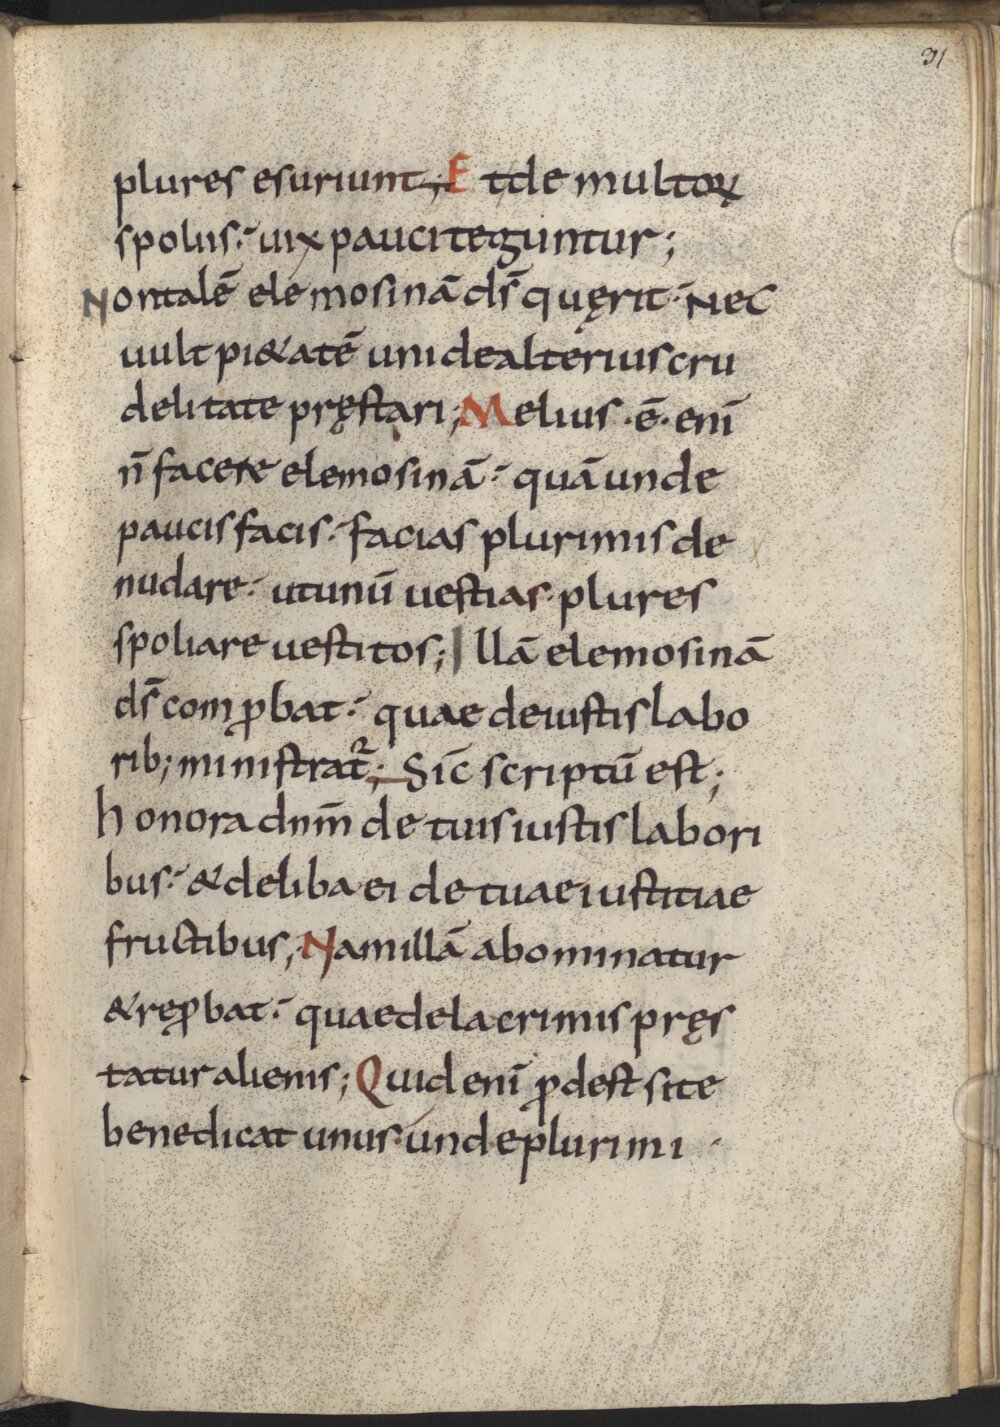 31
plures esuriunt; Et de multoꝝ
spoliis· uix pauci teguntur;
Non talē elemosinā ds̄ quęrit· Nec
uult pi&atē uni de alterius cru
delitate pręstari; Melius ·ē· enī
n̄ facere elemosinā· quā unde
paucis facis· facias plurimis de
nudare· ut unū uestias· plures
spoliare uestitos; Illā elemosinā
ds̄ comꝓbat· quae de iustis labo
rib; ministrat᷑; Sic̄ scriptū est;
honora dnm̄ de tuis iustis labori
bus· & deliba ei de tuae iustitiae
fructibus; Nam illā abominatur
& reꝓbat· quae de lacrimis pręs
tatur alienis; Quid enī ꝓdest si te
benedicat unus· unde plurimi